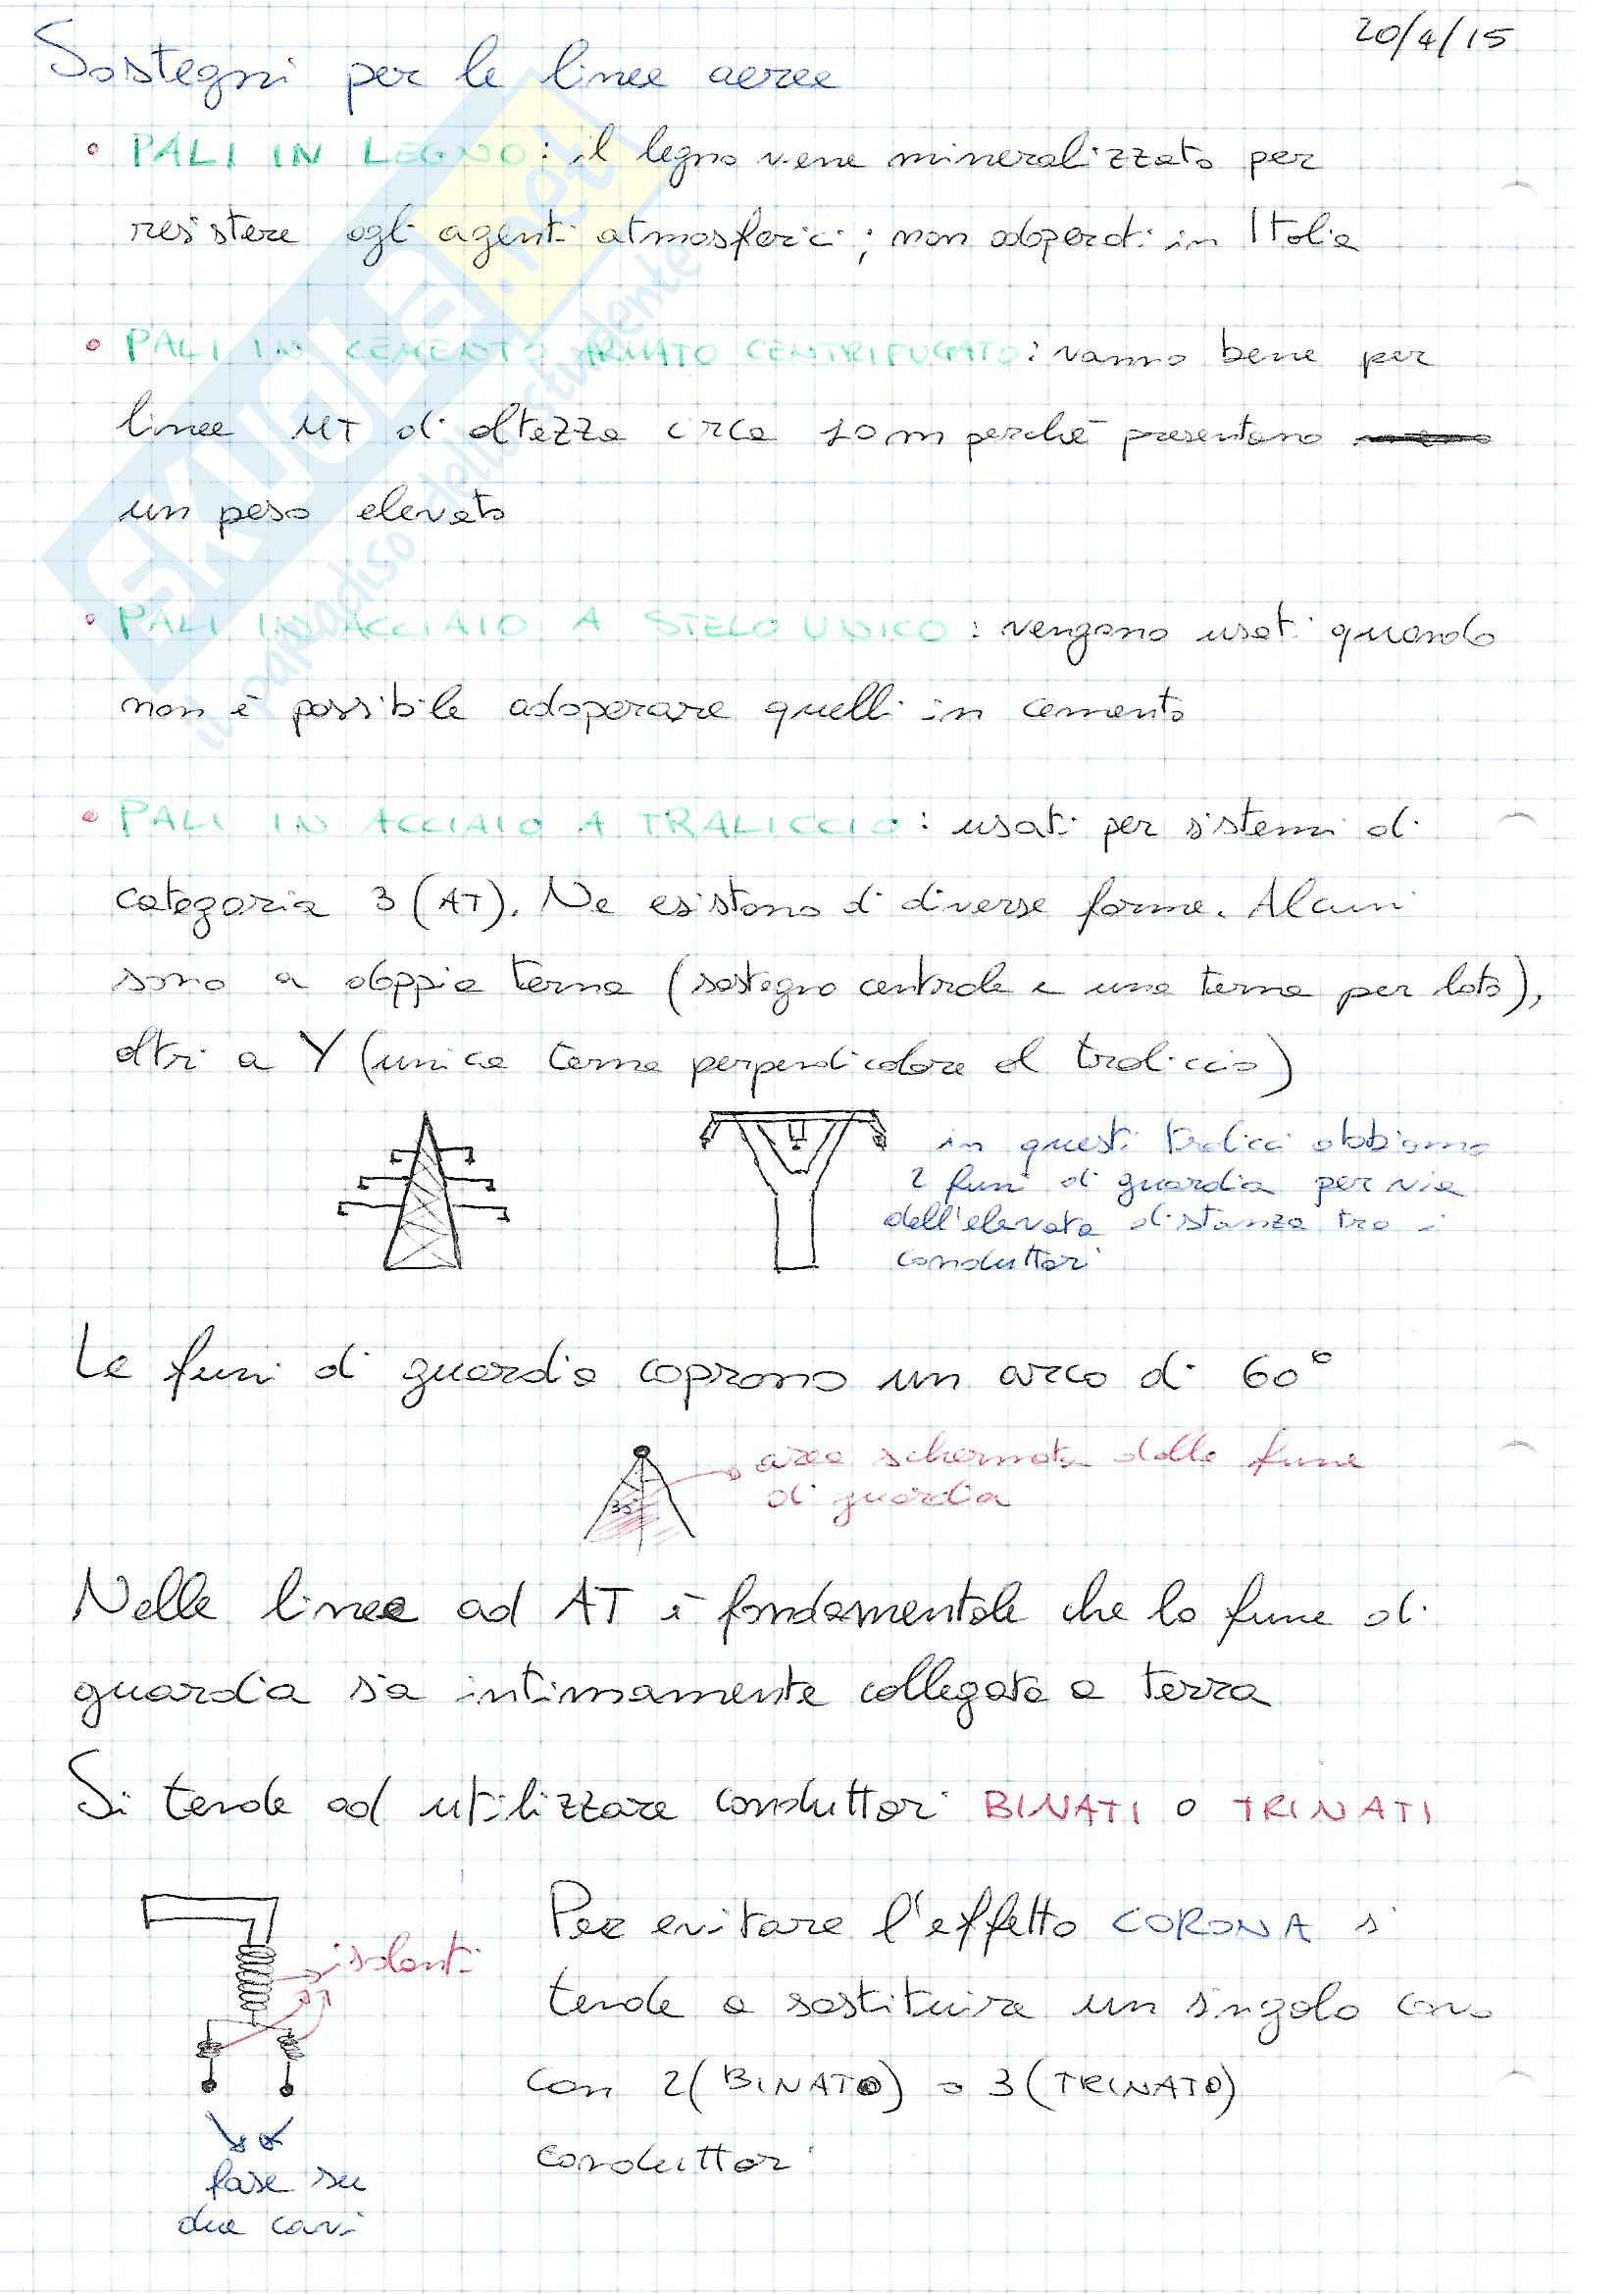 20/4/15
Sostegni per le linee aeree
• PALI IN LEGNO: il legno viene mineralizzato per
resistere agli agenti atmosferici; non adoperati in Italia
• PALI IN CEMENTO ARMATO CENTRIFUGATO: vanno bene per
linee MT di altezza circa 10m perché presentano
un peso elevato
• PALI IN ACCIAIO A STELO UNICO: vengono usati quando
non è possibile adoperare quelli in cemento
• PALI IN ACCIAIO A TRALICCIO: usati per sistemi di
categoria 3 (AT). Ne esistono di diverse forme. Alcuni
sono a doppia terna (sostegno centrale e una terna per lato),
altri a Y (unica terna perpendicolare al traliccio)
in questi tralicci abbiamo
2 funi di guardia per via
dell'elevata distanza tra i
conduttori
Le funi di guardia coprono un arco di 60°
area schermata dalla fune
di guardia
Nelle linee ad AT è fondamentale che la fune di
guardia sia intimamente collegata a terra
Si tende ad utilizzare conduttori BINATI o TRINATI
isolanti
fase su
due cavi
Per evitare l'effetto CORONA si
tende a sostituire un singolo cavo
con 2 (BINATO) o 3 (TRINATO)
conduttori
SKUOLA.net
il paradiso dello studente